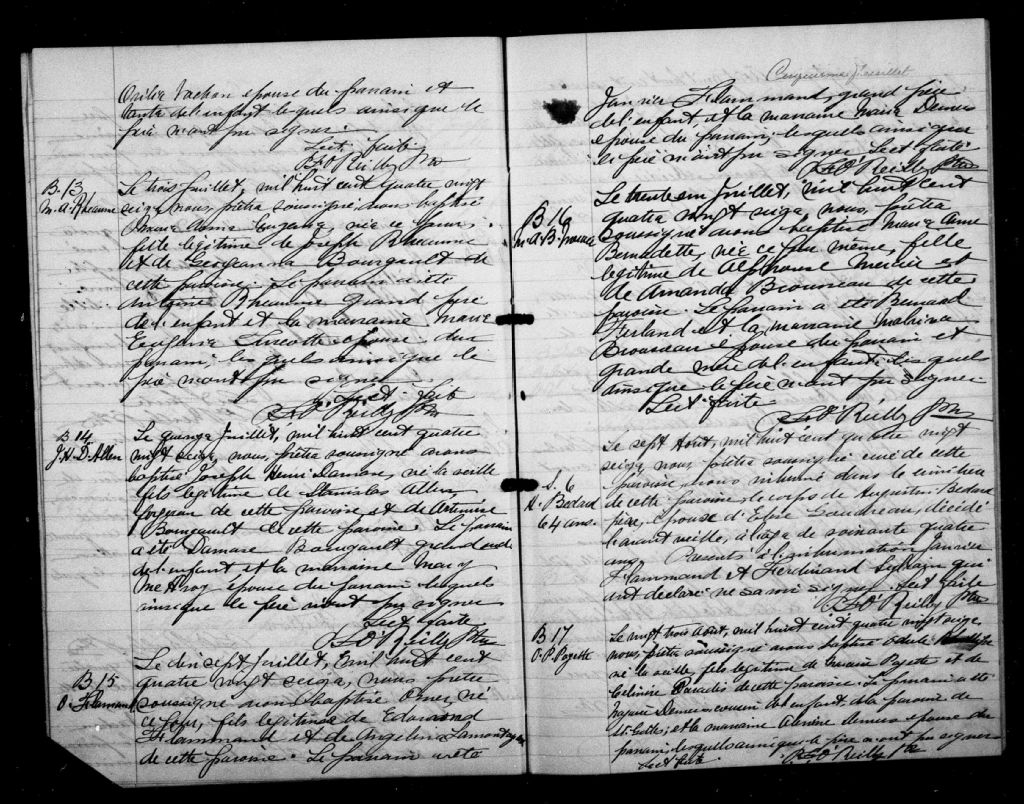 Vachon épouse du parrain et
tante de l'enfant lesquels ainsi que le
père n'ont pu signer.
Lect. faite
O'Reilly Ptre
B. 13
M. A. Rheaume
Le trois Juillet, mil huit cent quatre vingt
seize, nous, prêtre soussigné avons baptisé
Marie Anna née ce jour,
fille légitime de Joseph Rheaume
et de Georgeanna Bourgault de
cette paroisse. Le parrain a été
Antoine Rheaume grand père
de l'enfant et la marraine Marie
épouse du
parrain, lesquels ainsi que le
père n'ont pu signer
Lect. faite
O'Reilly Ptre
B 14
J. H. D. Allen
Le quinze Juillet, mil huit cent quatre
vingt seize, nous, prêtre soussigné avons
baptisé Joseph Henri Damase, né la veille
fils légitime de Stanislas Allen,
de cette paroisse et de
Bourgault de cette paroisse. Le parrain
a été Damase Bourgault
de l'enfant et la marraine Mary
McAvoy épouse du parrain lesquels
ainsi que le père n'ont pu signer
Lect. faite
O'Reilly Ptre
B 15
O. Flamand
Le dix sept Juillet, mil huit cent
quatre vingt seize, nous prêtre
soussigné avons baptisé Omer, né
ce jour, fils légitime de Edmond
Flammand et de Angelina Lamontagne
de cette paroisse. Le parrain a été
Cinquième feuillet
Janvier Flammand, grand père
de l'enfant et la marraine Marie Demers
épouse du parrain, lesquels ainsi que
le père n'ont pu signer Lect. faite
O'Reilly Ptre
B 16
M. A. B.
Le trente un Juillet, mil huit cent
quatre vingt seize, nous, prêtre
soussigné avons baptisé Marie Anne
Bernadette, née ce jour même, fille
légitime de Alphonse Mercier et
de Amanda Brousseau de cette
paroisse. Le parrain a été Bernard
Ferland et la marraine Malvina
Brousseau épouse du parrain et
grande mère de l'enfant. Lesquels
ainsi que le père n'ont pu signer
Lect. faite
O'Reilly Ptre
S. 6
A. Bedard
64 ans.
Le sept Aout, mil huit cent quatre vingt
seize, nous, prêtre soussigné curé de cette
paroisse, avons inhumé dans le cimetière
de cette paroisse, le corps de Augustin Bedard
père, époux d' Gaudreau, décédé
l'avant veille, à l'age de soixante quatre
ans. Présents à l'inhumation Janvier
Flammand et Ferdinand qui
ont déclaré ne savoir signer. Lect. faite
O'Reilly Ptre
B 17
O. P. Payette
Le vingt trois Aout, mil huit cent quatre vingt seize,
nous, prêtre soussigné avons baptisé
né la veille, fils légitime de Payette et de
Célinire Paradis de cette paroisse. Le parrain a été
Demers cousin de l'enfant, de la paroisse de
St. et la marraine Demers épouse du
parrain, lesquels ainsi que le père n'ont pu signer
Lect. faite
O'Reilly Ptre